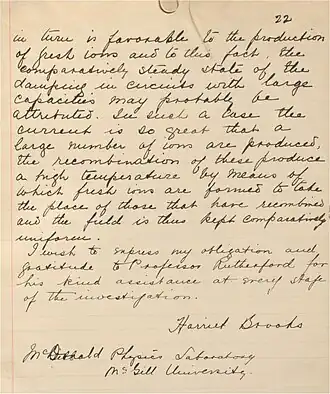 22
in turn is favorable to the production
of fresh ions and to this fact, the
comparatively steady state of the
damping in circuits with large
capacities may probably be
attributed. In such a case the
current is so great that a
large number of ions are produced,
the recombination of these produce
a high temperature by means of
which fresh ions are formed to take
the place of those that have recombined
and the field is thus kept comparatively
uniform.
I wish to express my obligation and
gratitude to Professor Rutherford for
his kind assistance at every stage
of the investigation.
Harriet Brooks
McDonald Physics Laboratory
McGill University.